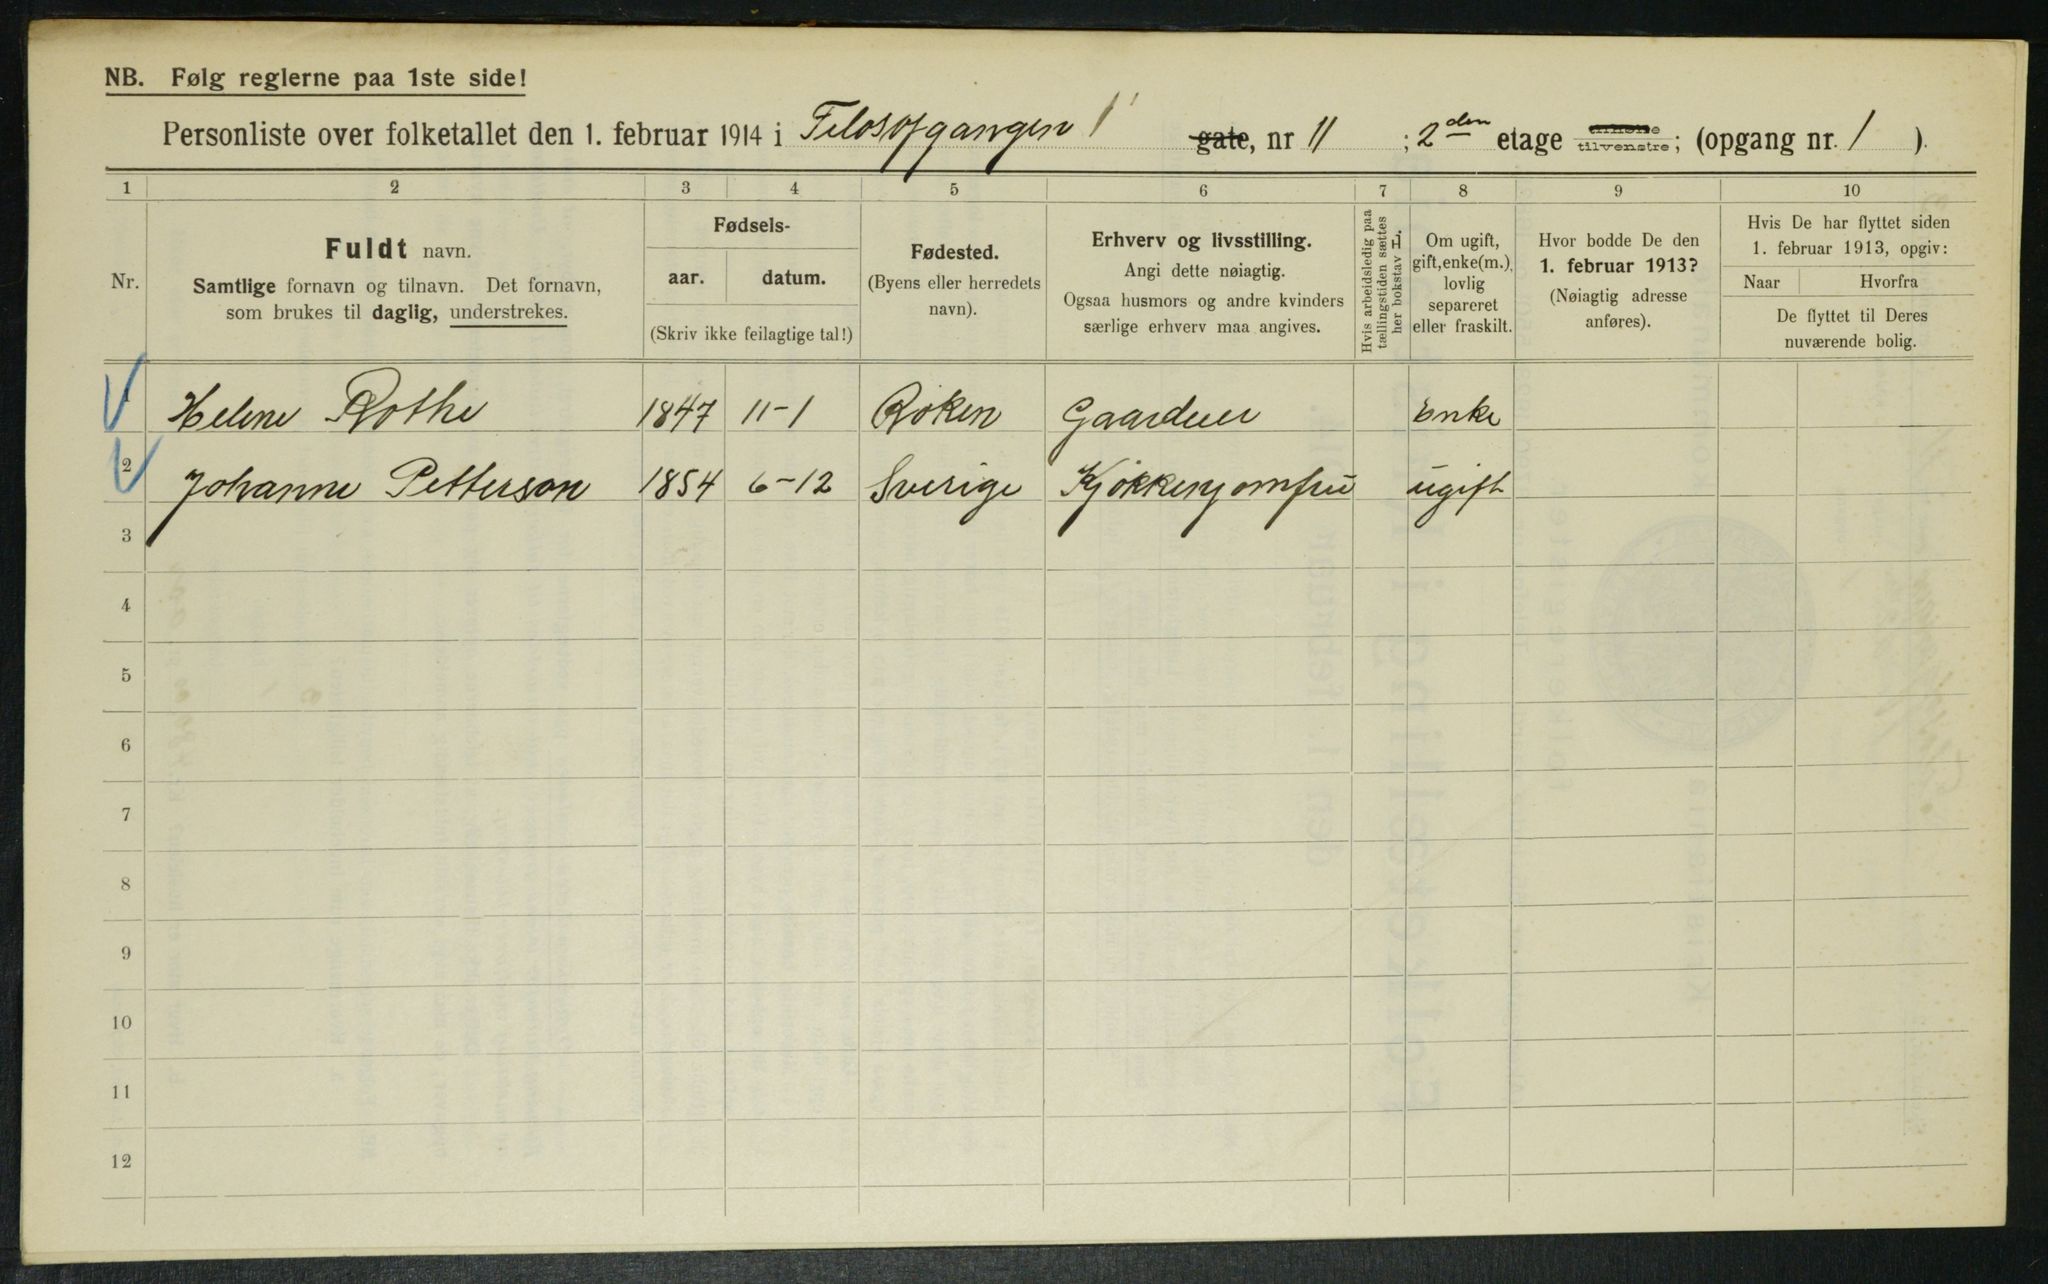 NB. Følg reglerne paa 1ste side!
Personliste over folketallet den 1. februar 1914 i Filosofgangen 1 gate, nr 11 ; 2den etage tilhøire tilvenstre; (opgang nr. 1 ).
1 2 3 4 5 6 7 8 9 10
Nr.
Fuldt navn.
Samtlige fornavn og tilnavn. Det fornavn,
som brukes til daglig, understrekes.
Fødsels-
aar. datum.
(Skriv ikke feilagtige tal!)
Fødested.
(Byens eller herredets
navn).
Erhverv og livsstilling.
Angi dette nøiagtig.
Ogsaa husmors og andre kvinders
særlige erhverv maa angives.
Hvis arbeidsledig paa
tællingstiden sættes
her bokstav L.
Om ugift,
gift, enke(m.),
lovlig
separeret
eller fraskilt.
Hvor bodde De den
1. februar 1913?
(Nøiagtig adresse
anføres).
Hvis De har flyttet siden
1. februar 1913, opgiv:
Naar Hvorfra
De flyttet til Deres
nuværende bolig.
1 Helene Rothe 1847 11-1 Røken Gaardeier Enke
2 Johanne Petterson 1854 6-12 Sverige Kjøkkenjomfru ugift
3
4
5
6
7
8
9
10
11
12